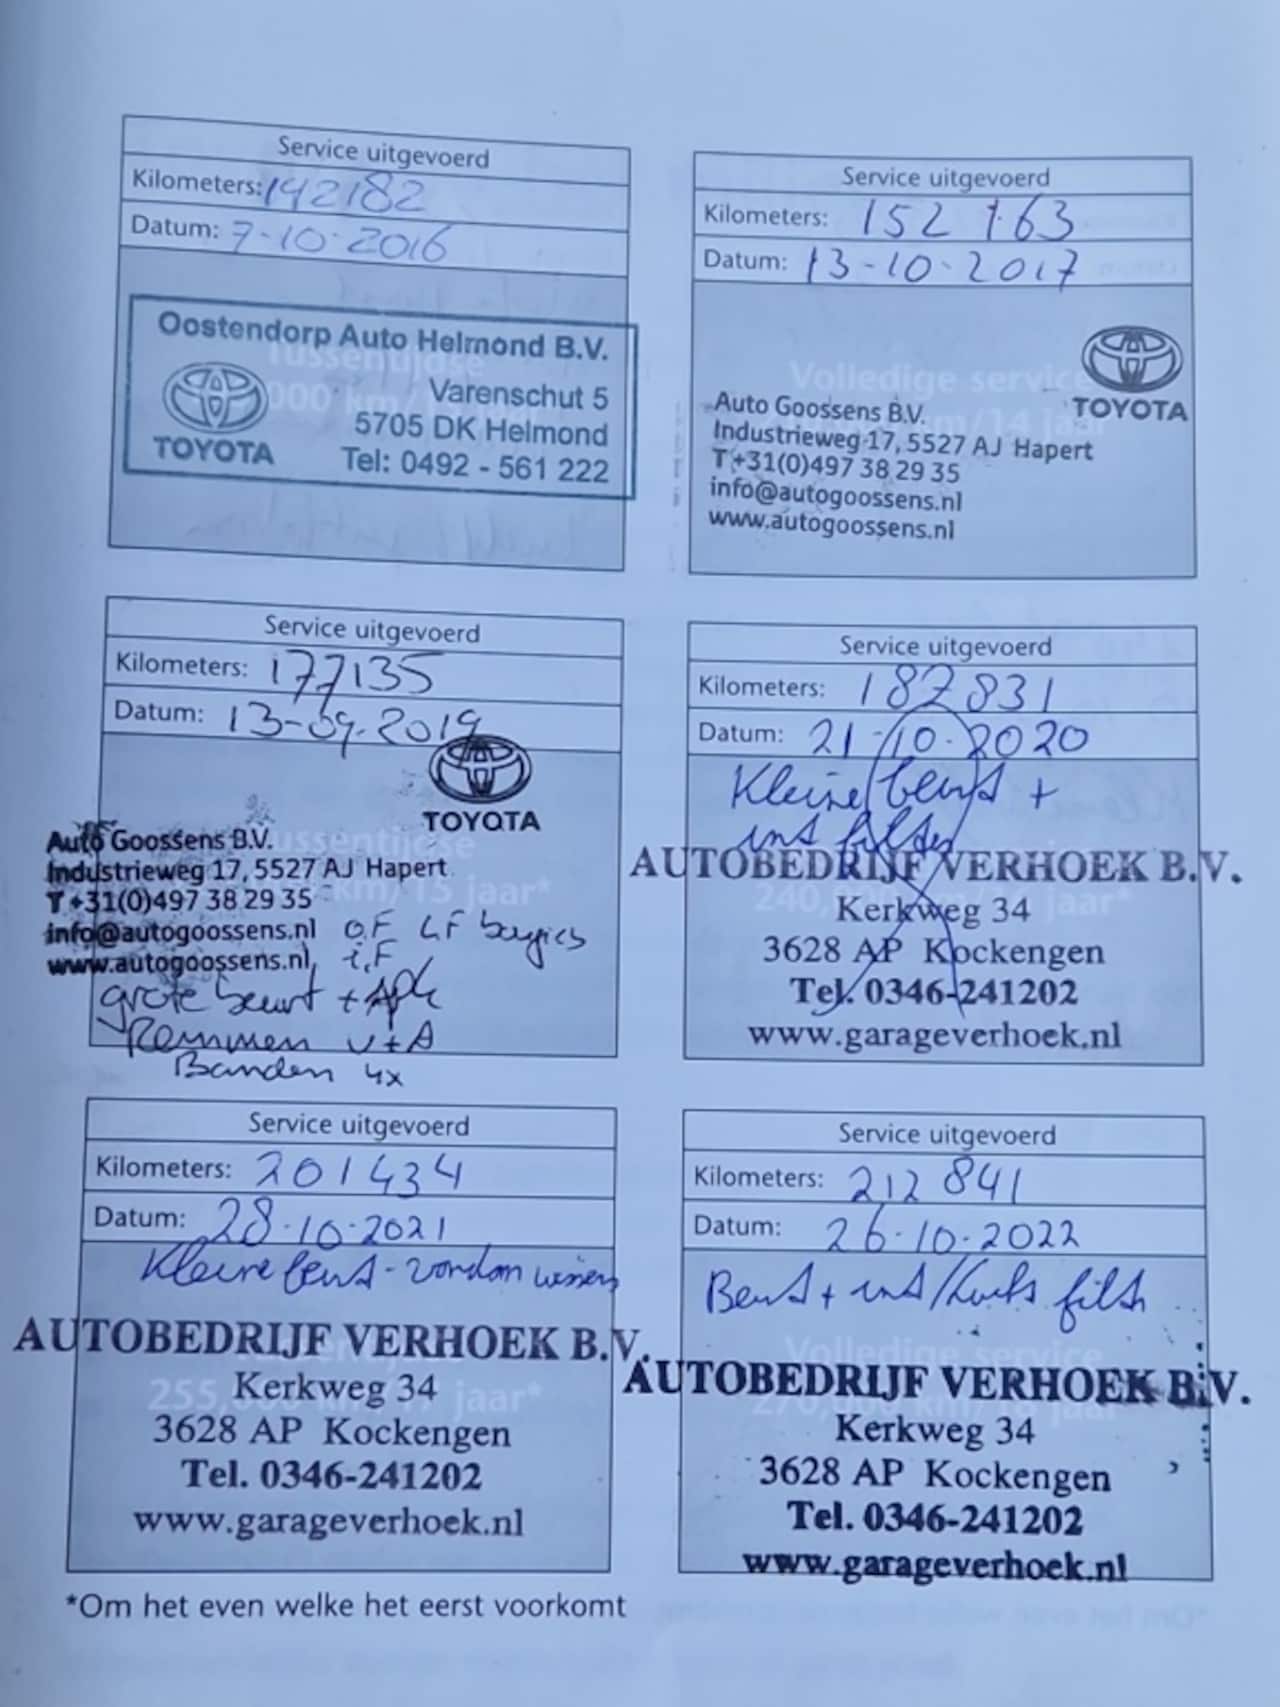 Service uitgevoerd
Kilometers: 142182
Datum: 7-10-2016
Oostendorp Auto Helmond B.V.
Tussentijdse
Varenschut 5
000 km/
5705 DK Helmond
TOYOTA
Tel: 0492 - 561 222
Service uitgevoerd
Kilometers: 152 163
Datum: 13-10-2017
Volledige service
TOYOTA
Auto Goossens B.V.
km/14 jaar
Industrieweg 17, 5527 AJ Hapert
T +31(0)497 38 29 35
info@autogoossens.nl
www.autogoossens.nl
Service uitgevoerd
Kilometers: 177135
Datum: 13-09-2019
TOYOTA
Auto Goossens B.V.
Tussentijdse
Industrieweg 17, 5527 AJ Hapert
km/15 jaar*
T +31(0)497 38 29 35
info@autogoossens.nl O.F LF bougies
www.autogoossens.nl, i.F
grote beurt + Apk
Remmen V+A
Banden 4x
Service uitgevoerd
Kilometers: 182831
Datum: 21-10-2020
Kleine beurt +
int filter
AUTOBEDRIJF VERHOEK B.V.
240,000 km/16 jaar*
Kerkweg 34
3628 AP Kockengen
Tel. 0346-241202
www.garageverhoek.nl
Service uitgevoerd
Kilometers: 201434
Datum: 28-10-2021
Kleine beurt -
AUTOBEDRIJF VERHOEK B.V.
255,000 km/17 jaar*
Kerkweg 34
3628 AP Kockengen
Tel. 0346-241202
www.garageverhoek.nl
Service uitgevoerd
Kilometers: 212 841
Datum: 26-10-2022
Beurt + int/lucht filter
Volledige service
AUTOBEDRIJF VERHOEK B.V.
270,000 km/18 jaar*
Kerkweg 34
3628 AP Kockengen
Tel. 0346-241202
www.garageverhoek.nl
*Om het even welke het eerst voorkomt